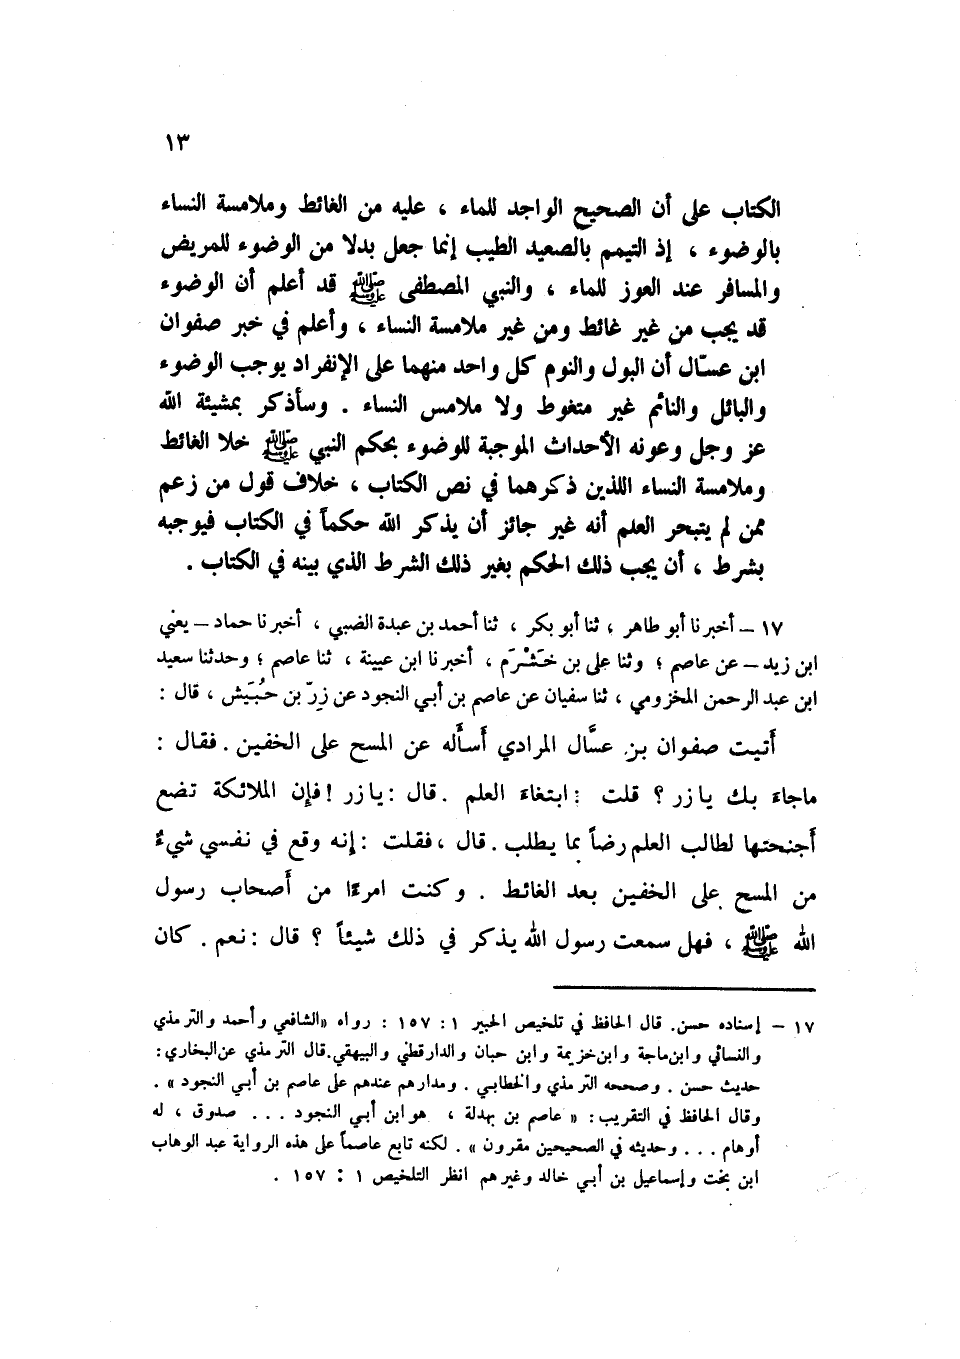 ١٣
الكتاب على أن الصحيح الواجد للماء ، عليه من الغائط وملامسة النساء
بالوضوء ، إذ التيمم بالصعيد الطيب إنما جعل بدلا من الوضوء للمريض
والمسافر عند العوز للماء ، والنبي المصطفى ﷺ قد أعلم أن الوضوء
قد يجب من غير غائط ومن غير ملامسة النساء ، وأعلم في خبر صفوان
ابن عسّال أن البول والنوم كل واحد منهما على الإنفراد يوجب الوضوء
والبائل والنائم غير متغوط ولا ملامس النساء . وسأذكر بمشيئة الله
عز وجل وعونه الأحداث الموجبة للوضوء بحكم النبي ﷺ خلا الغائط
وملامسة النساء اللذين ذكرهما في نص الكتاب ، خلاف قول من زعم
ممن لم يتبحر العلم أنه غير جائز أن يذكر الله حكماً في الكتاب فيوجبه
بشرط ، أن يجب ذلك الحكم بغير ذلك الشرط الذي بينه في الكتاب .
١٧ – أخبرنا أبو طاهر ، ثنا أبو بكر ، ثنا أحمد بن عبدة الضبي ، أخبرنا حماد – يعني
ابن زيد – عن عاصم ؛ وثنا علي بن خَشْرَم ، أخبرنا ابن عيينة ، ثنا عاصم ؛ وحدثنا سعيد
ابن عبد الرحمن المخزومي ، ثنا سفيان عن عاصم بن أبي النجود عن زِرّ بن حُبَيش ، قال :
أَتيت صفوان بن عسَّال المرادي أَسأَله عن المسح على الخفين . فقال :
ماجاءَ بك يا زر ؟ قلت : ابتغاءَ العلم . قال : يا زر ! فإن الملائكة تضع
أَجنحتها لطالب العلم رضاً بما يطلب . قال ، فقلت : إنه وقع في نفسي شيءٌ
من المسح على الخفين بعد الغائط . وكنت امرءًا من أَصحاب رسول
الله ﷺ ، فهل سمعت رسول الله يذكر في ذلك شيئاً ؟ قال : نعم . كان
١٧ – إسناده حسن. قال الحافظ في تلخيص الحبير ١ : ١٥٧ : رواه «الشافعي وأحمد والترمذي
والنسائي وابن ماجة وابن خزيمة وابن حبان والدارقطني والبيهقي.قال الترمذي عن البخاري :
حديث حسن . وصححه الترمذي والخطابي . ومدارهم عندهم على عاصم بن أبي النجود » .
وقال الحافظ في التقريب : « عاصم بن بهدلة ، هو ابن أبي النجود . . . صدوق ، له
أوهام . . . وحديثه في الصحيحين مقرون » . لكنه تابع عاصماً على هذه الرواية عبد الوهاب
ابن بخت وإسماعيل بن أبي خالد وغيرهم انظر التلخيص ١ : ١٥٧ .